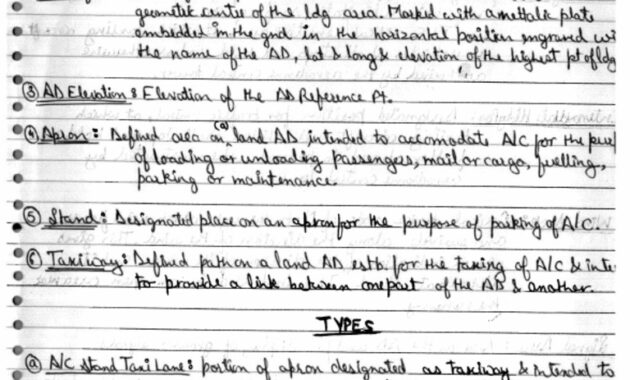 geometric centre of the ldg area. Marked with a mettalic plate
embedded in the gnd in the horizontal position engraved wi
the name of the AD, lat & long & elevation of the highest pt of ldg
③ AD Elevation : Elevation of the AD Reference Pt.
④ Apron : Defined area on (a) land AD intended to accomodate A/C for the pur
of loading or unloading passengers, mail or cargo, fuelling,
parking or maintenance.
⑤ Stand : Designated place on an apron for the purpose of parking of A/C.
⑥ Taxiway : Defined path on a land AD estb. for the taxing of A/C & inte
to provide a link between one part of the AD & another.
TYPES
ⓐ A/C Stand Taxi Lane : portion of apron designated as taxiway & intended to